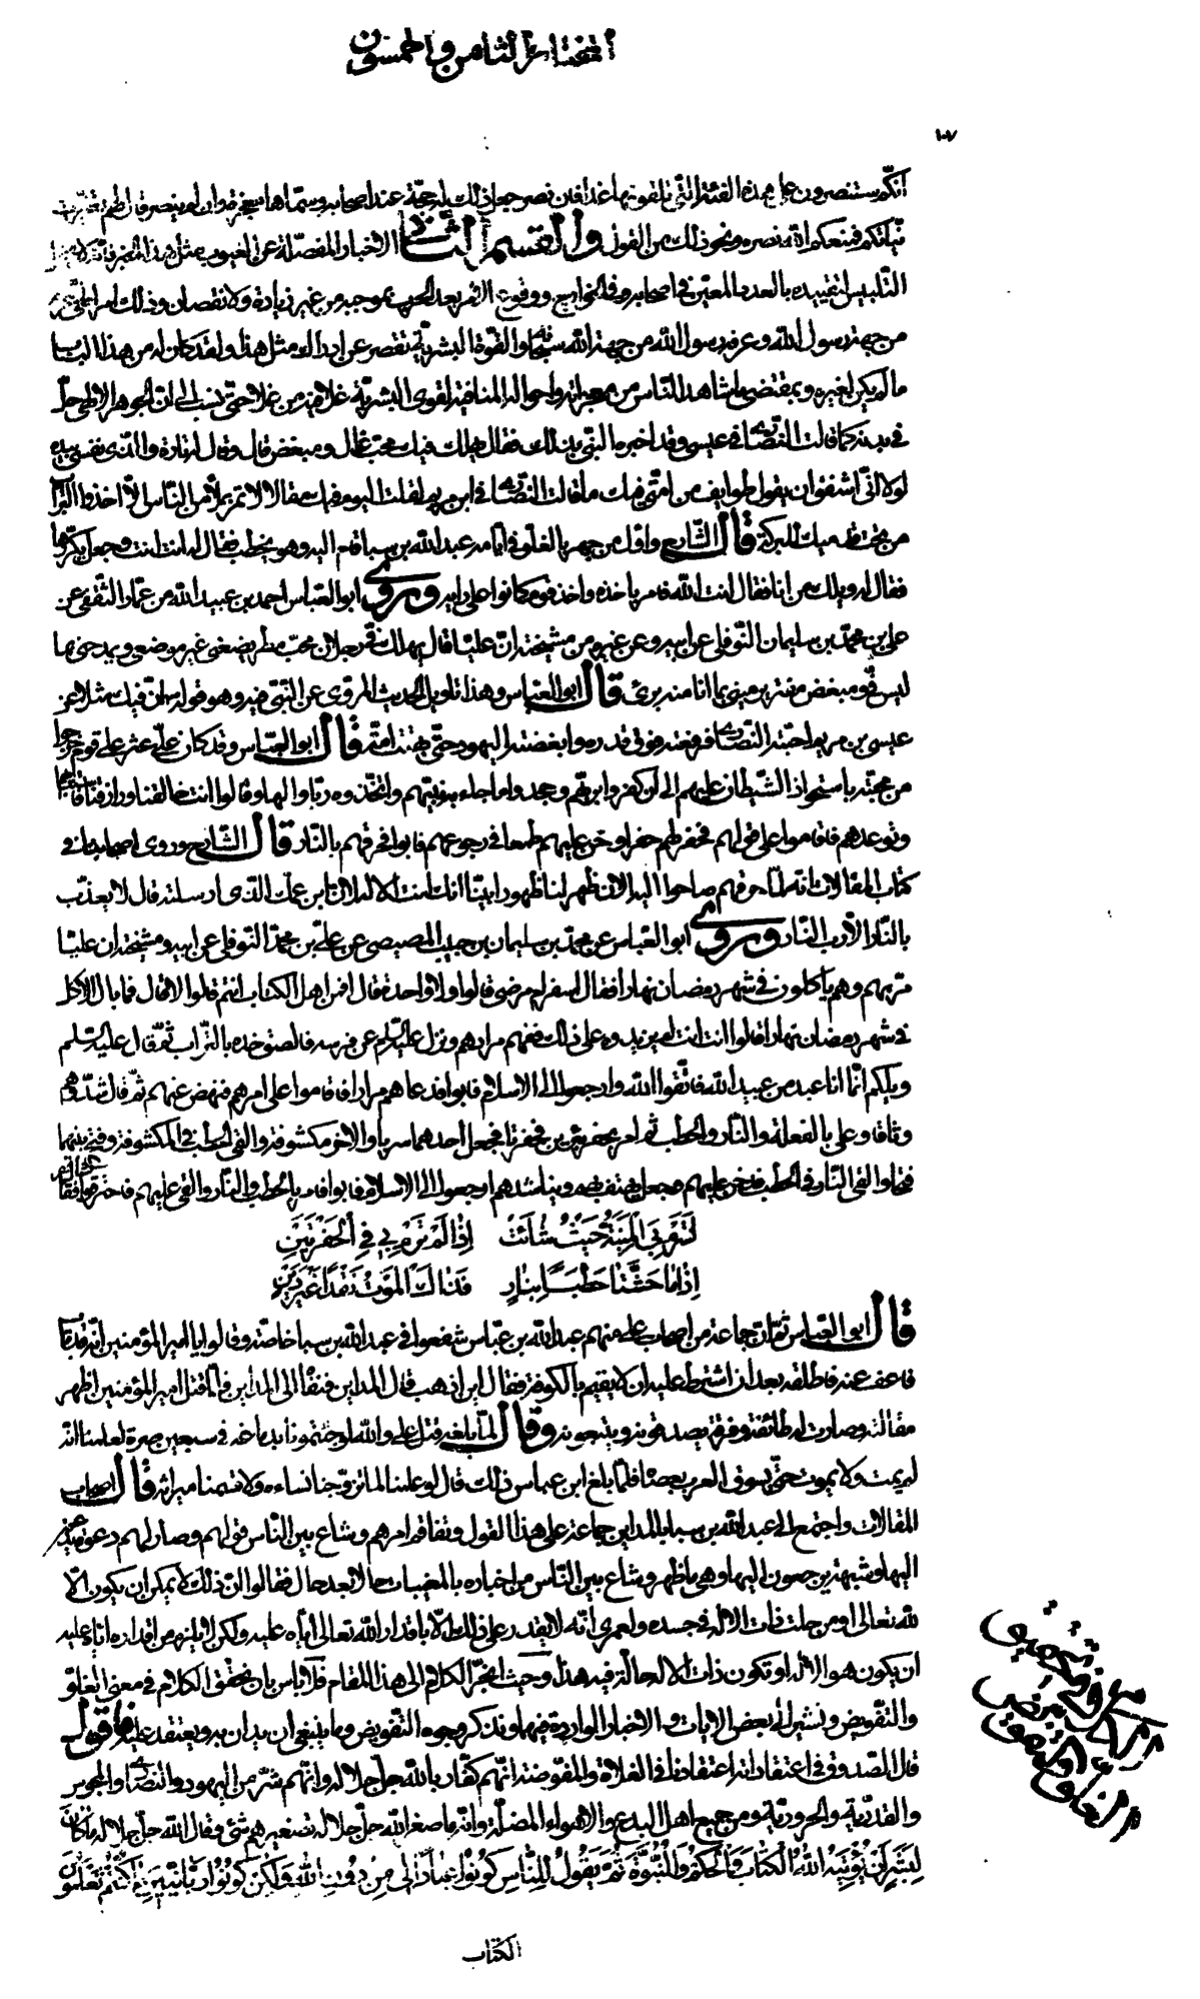 المختار الثامن والخمسون
١٠٧
انكم ستنصرون على هذه الفئة التي تلقونها غدا فان نصر جعل ذلك له حجة عند اصحابه وسماها معجزة وان لم ينصر قال لهم تغيرت
نياتكم فمنعكم الله نصره ونحو ذلك من القول والقسم الثاني الاخبار المفصلة عن الغيوب مثل هذا الخبر فانه لا يحتمل
التلبيس لتقييده بالعدد المعين في اصحابه وفي الخوارج ووقوع الامر بعد الحرب بموجبه من غير زيادة ولا نقصان وذلك امر الهي عرفه
من جهة رسول الله وعرفه رسول الله من جهة الله سبحانه والقوة البشرية تقصر عن ادراك مثل هذا ولقد كان له من هذا الباب
ما لم يكن لغيره وبمقتضى ما شاهد الناس من معجزاته واحواله المنافية لقوى البشرية غلا فيه من غلا حتى نسب الى ان الجوهر الالهي حل
في بدنه كما قالت النصارى في عيسى وقد اخبره النبي بذلك فقال يهلك فيك محب غال ومبغض قال وقال له تارة والذي نفسي بيده
لولا اني اشفق ان يقول طوايف من امتي فيك ما قالت النصارى في ابن مريم لقلت اليوم فيك مقالا لا تمر بملأ من الناس الا اخذوا التراب
من تحت قدميك للبركة قال الشارح واول من جهر بالغلو في ايامه عبد الله بن سبا قام اليه وهو يخطب فقال له انت انت وجعل يكررها
فقال له ويلك من انا فقال انت الله فامر باخذه واخذ قوم كانوا على رايه وروى ابو العباس احمد بن عبيد الله من عمار الثقفي عن
علي بن محمد بن سليمان النوفلي عن ابيه وعن غيره من مشيخته ان عليا قال يهلك في رجلان محب مطر يضعني غير موضعي ويمدحني بما
ليس في ومبغض مفتر يرميني بما انا منه بريئ قال ابو العباس وهذا تاويل الحديث المروي عن النبي فيه وهو قوله ان فيك مثلا من
عيسى بن مريم احبته النصارى فرفعته فوق قدره وابغضته اليهود حتى بهتت امه قال ابو العباس وقد كان علي عثر على قوم خرجوا
من محبته باستحواذ الشيطان عليهم الى ان كفروا بربهم وجحدوا ما جاء به نبيهم واتخذوه ربا والها وقالوا انت خالقنا ورازقنا فاستتابهم
وتوعدهم فاقاموا على قولهم فحفر لهم حفرا دخن عليهم طمعا في رجوعهم فابوا فحرقهم بالنار قال الشارح وروى اصحابنا في
كتاب المقالات انه لما حرقهم صاحوا اليه الان ظهر لنا ظهورا بينا انك انت الاله لان ابن عمك الذي ارسلته قال لا يعذب
بالنار الا رب النار وروى ابو العباس عن محمد بن سليمان بن حبيب المصيصي عن علي بن محمد النوفلي عن ابيه ومشيخته ان عليا
مر بهم وهم ياكلون في شهر رمضان نهارا فقال اسفر ام مرضى قالوا ولا واحدة فقال افمن اهل الكتاب انتم قالوا لا قال فما بال الاكل
في شهر رمضان نهارا قالوا انت انت لم يزيدوه على ذلك ففهم مرادهم ونزل عليه السلام عن فرسه فالصق خده بالتراب ثم قال عليه السلم
ويلكم انما انا عبد من عبيد الله فاتقوا الله وارجعوا الى الاسلام فابوا فدعاهم مرارا فاقاموا على امرهم فنهض عنهم ثم قال شدوهم
وثاقا وعلي بالفعلة والنار والحطب ثم امر بحفر بئرين فحفرتا فجعل احدهما سربا والاخر مكشوفة والقى الحطب في المكشوفة وفتح بينهما
فتحا والقى النار في الحطب فدخن عليهم وجعل يهتف بهم ويناشدهم ارجعوا الى الاسلام فابوا فامر بالحطب والنار والقى عليهم فاحترقوا فقال
الشاعر
لترم بي المنية حيث شاءت إذا لم ترم بي في الحفرتين
إذا ما حشتا حطبا بنار فذاك الموت نقدا غير دين
قال ابو العباس ثم ان جماعة من اصحاب علي منهم عبد الله بن عباس شفعوا في عبد الله بن سبا خاصة وقالوا يا امير المؤمنين انه قد تاب
فاعف عنه فاطلقه بعد ان اشترط عليه ان لا يقيم بالكوفة فقال اين اذهب قال المداين فنفاه الى المداين فلما قتل امير المؤمنين اظهر
مقالته وصارت له طائفة وفرقة يصدقونه ويتبعونه وقال لما بلغه قتل علي والله لو جئتمونا بدماغه في سبعين صرة لعلمنا انه
لم يمت ولا يموت حتى يسوق العرب بعصاه فلما بلغ ابن عباس ذلك قال لو علمنا لما تزوجنا نساءه ولا قسمنا ميراثه قال اصحاب
المقالات واجتمع الى عبد الله بن سبا بالمداين جماعة على هذا القول وتفاقم امرهم وشاع بين الناس قولهم وصار لهم دعوة يدعون
اليها وشبهة يرجعون اليها وهي ما ظهر وشاع بين الناس من اخباره بالمغيبات حالا بعد حال فقالوا ان ذلك لا يمكن ان يكون الا
لله تعالى او من حلت ذات الاله في جسده ولعمري انه لا يقدر على ذلك الا باقدار الله تعالى اياه عليه ولكن لا يلزم من اقداره اياه عليه
ان يكون هو الاله او تكون ذات الاله حالة فيه هذا وحيث انجر الكلام الى هذا المقام فلا باس بان نحقق الكلام في معنى الغلو
والتفويض ونشير الى بعض الايات والاخبار الواردة فيهما ونذكر وجوه التفويض وما ينبغي ان يدان به ويعتقد عليه فاقول
قال الصدوق في اعتقاداته اعتقادنا في الغلاة والمفوضة انهم كفار بالله جل جلاله وانهم شر من اليهود والنصارى والمجوس
والقدرية والحرورية ومن جميع اهل البدع والاهواء المضلة وانه ما صغر الله جل جلاله تصغيرهم شيء فقال الله جل جلاله ما كان
لبشر أن يؤتيه الله الكتاب والحكم والنبوة ثم يقول للناس كونوا عبادا لي من دون الله ولكن كونوا ربانيين بما كنتم تعلمون
الكتاب
في تحقيق
معنى
الكلام في
الغلو والتفويض